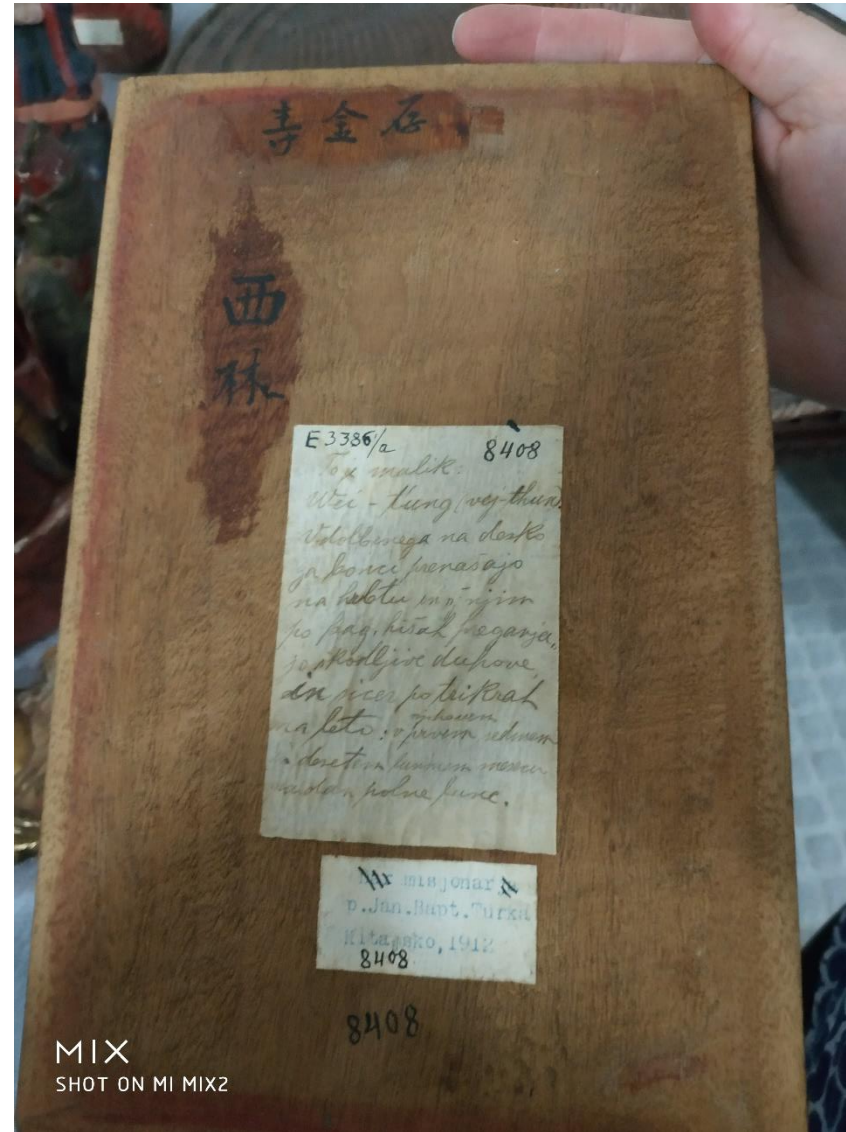 壽金存
西
林
E 3386/a 8408
malik:
Wei - Kung (vej-thun)
Vdolbenega na desko
ga bonci prenašajo
na hrbtu in z njim
po pag. hišah preganja,
jo škodljive duhove,
in sicer po trikrat
na leto: v prvem sedmem
osmem
i desetem luninem mesecu
na dan polne lune.
misjonar
p.Jan.Bapt.Turxa
Kitajsko, 1912
8408
8408
MIX
SHOT ON MI MIX2